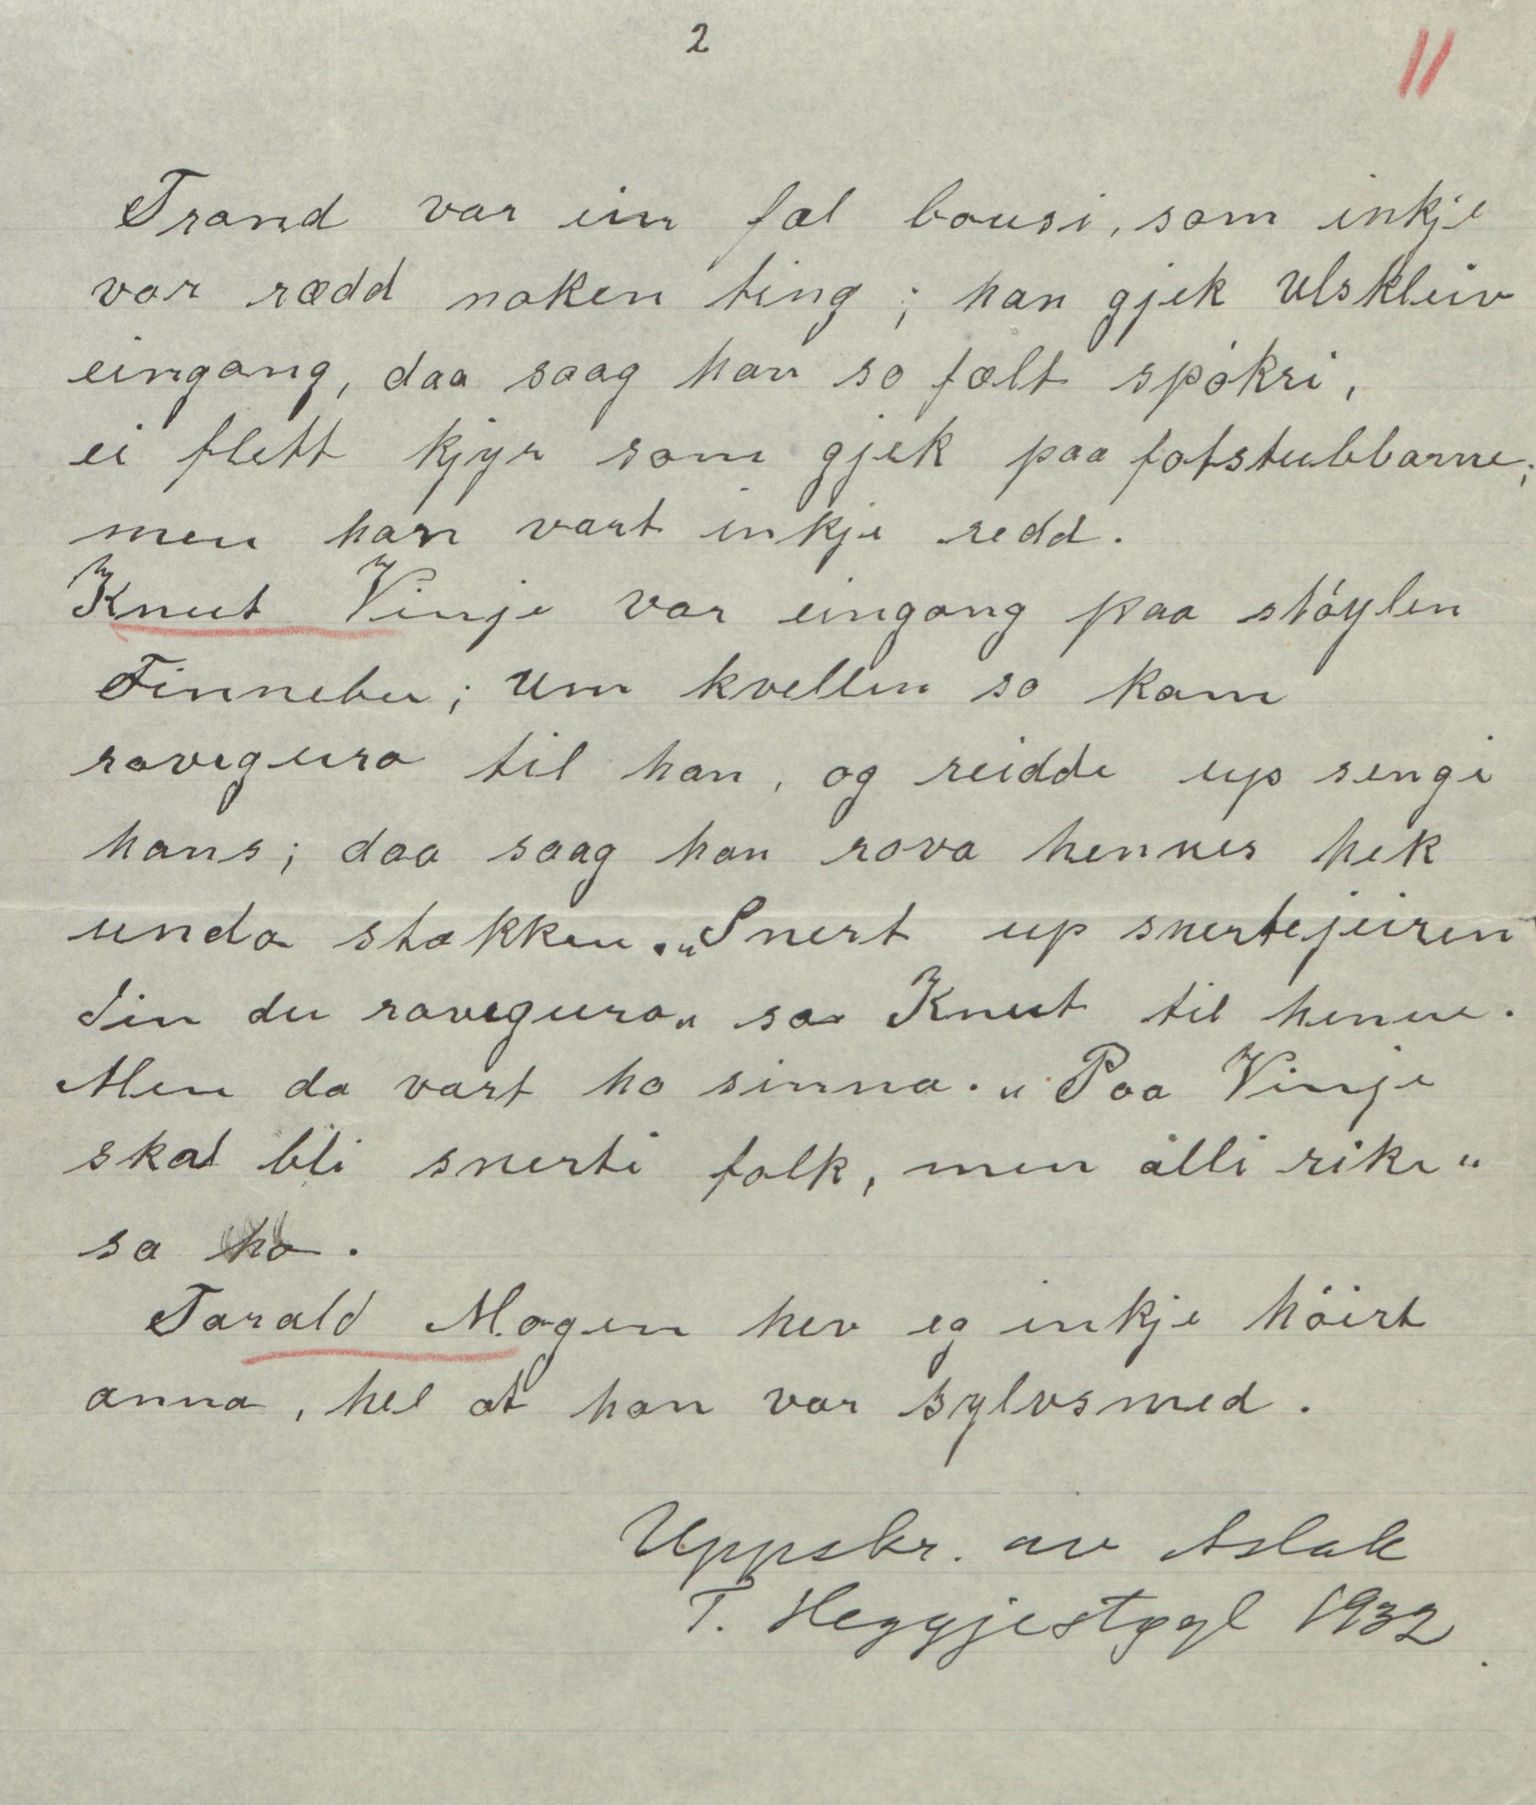 2
11
Trond var ein fæl bousi, som inkje
var rædd noken ting; han gjek Ulskleiv
eingong, daa saag han so fælt spókri,
ei flett kjyr som gjek paa fotstubbarne;
men han vart inkje redd.
Knut Vinje var eingong paa stóylen
Finnebu; um kvellen so kom
roveguro til han, og reidde up sengi
hans; daa saag han rova hennes hek
unda stakken. „Snert up snertejeiren
din du roveguro" sa Knut til henne.
Men da vart ho sinna. „Paa Vinje
skal bli snerti folk, men alli rike"
sa ho.
Tarald Mogen hev eg inkje hóirt
anna, hel at han var sylvsmed.
Uppskr. av Aslak
T. Heggjestøyl 1932.